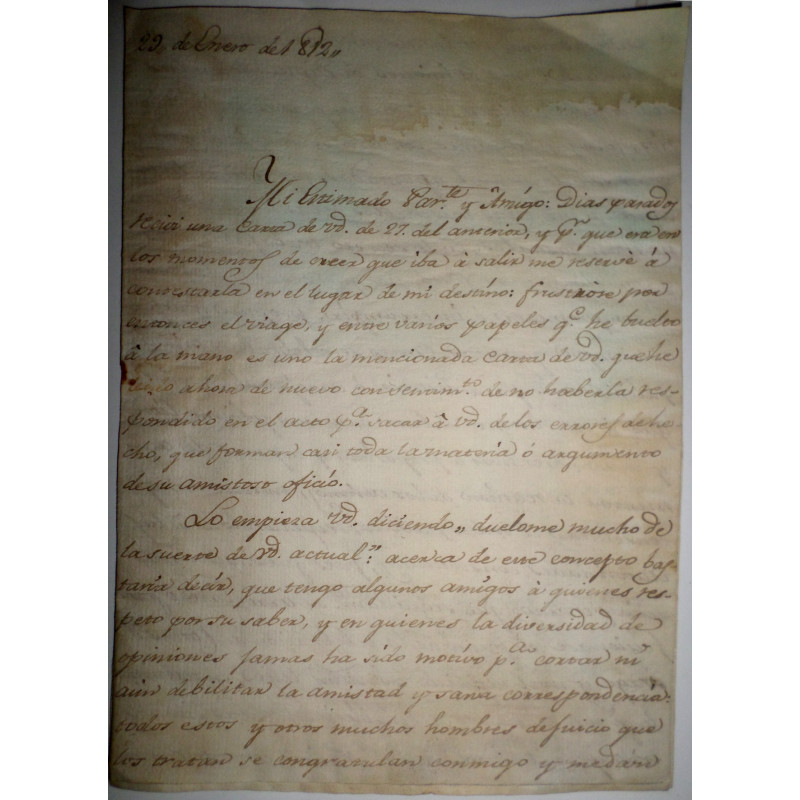 29, de Enero de 1812,,
Mi Estimado Par.te y Amigo: Dias pasados
recivi una Carta de vd. de 27. del anterior, y p.r que era en
los momentos de creer que iba à salir me reservè à
contestarla en el lugar de mi destino: frustròse por
entonces el viage, y entre varios papeles q.e he buelto
à la mano es uno la mencionada Carta de vd. que he
leido ahora de nuevo con sentim.to de no haberla res-
pondido en el acto p.a sacar à vd. de los errores de he-
cho, que forman casi toda la materia ò argumento
de su amistoso oficio.
Lo empieza vd. diciendo,, duelome mucho de
la suerte de vd. actual": acerca de este concepto bas-
taria decir, que tengo algunos amigos à quienes res-
peto por su saber, y en quienes la diversidad de
opiniones jamas ha sido motivo p.a cortar ni
aùn debilitar la amistad y sana correspondencia:
todos estos y otros muchos hombres de juicio que
los tratan se congratulan conmigo y me dàn